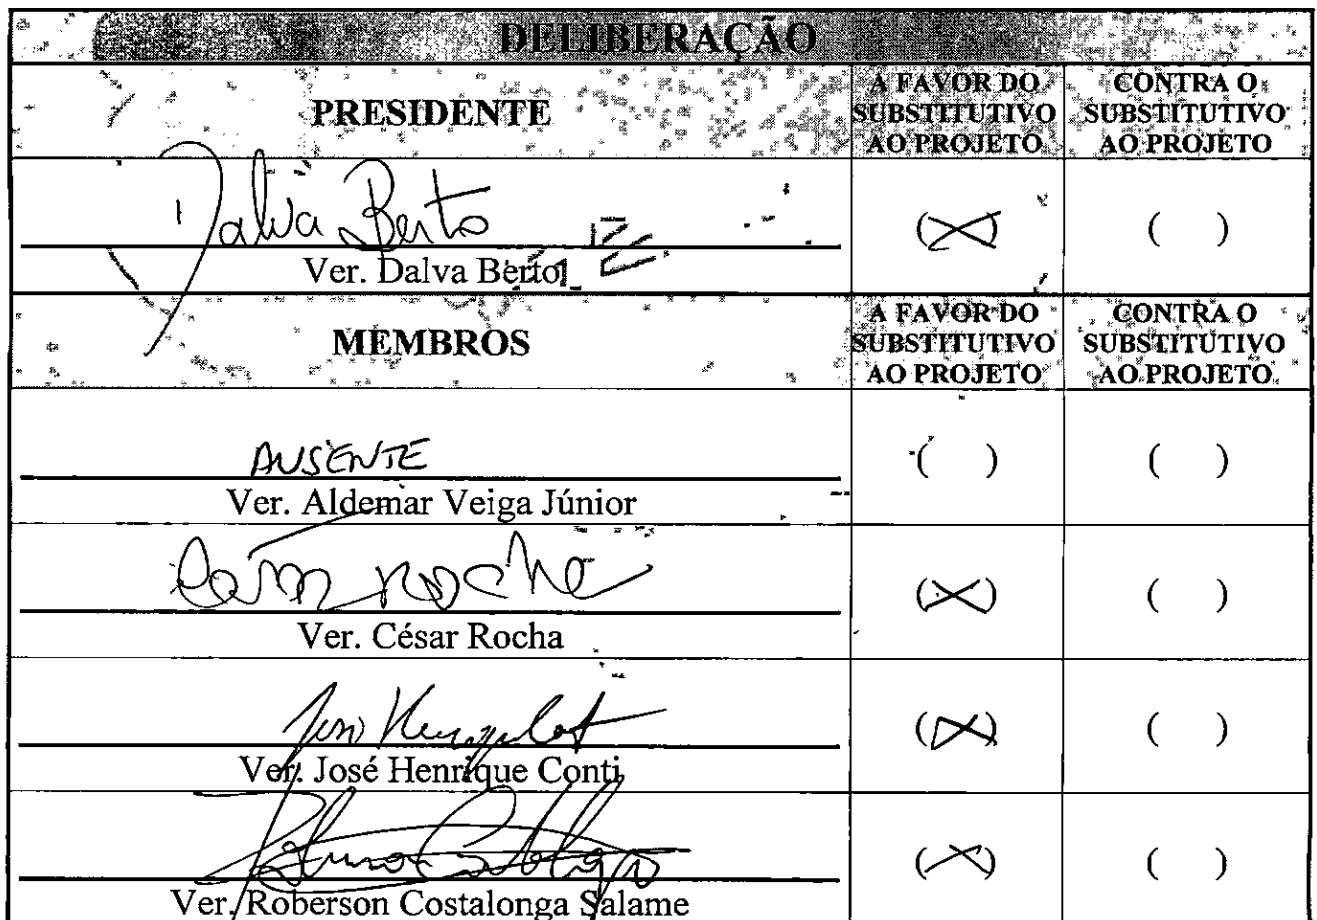 DELIBERAÇÃO
PRESIDENTE
A FAVOR DO SUBSTITUTIVO AO PROJETO
CONTRA O SUBSTITUTIVO AO PROJETO
Dalva Berto
(X) ( )
Ver. Dalva Berto
MEMBROS
A FAVOR DO SUBSTITUTIVO AO PROJETO
CONTRA O SUBSTITUTIVO AO PROJETO
AUSENTE
( ) ( )
Ver. Aldemar Veiga Júnior
(X) ( )
Ver. César Rocha
(X) ( )
Ver. José Henrique Conti
(X) ( )
Ver. Roberson Costalonga Salame